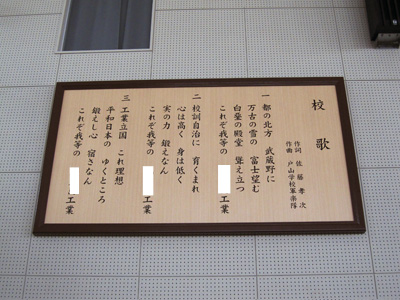 校歌
作詞 佐藤孝次
作曲 戸山学校軍楽隊
一 都の北方 武蔵野に
万古の雪の 富士望む
白堊の殿堂 聳え立つ
これぞ我等の 工業
二 校訓自治に 育くまれ
心は高く 身は低く
実の力 鍛えなん
これぞ我等の 工業
三 工業立国 これ理想
平和日本の ゆくところ
鍛えし心 宿さなん
これぞ我等の 工業